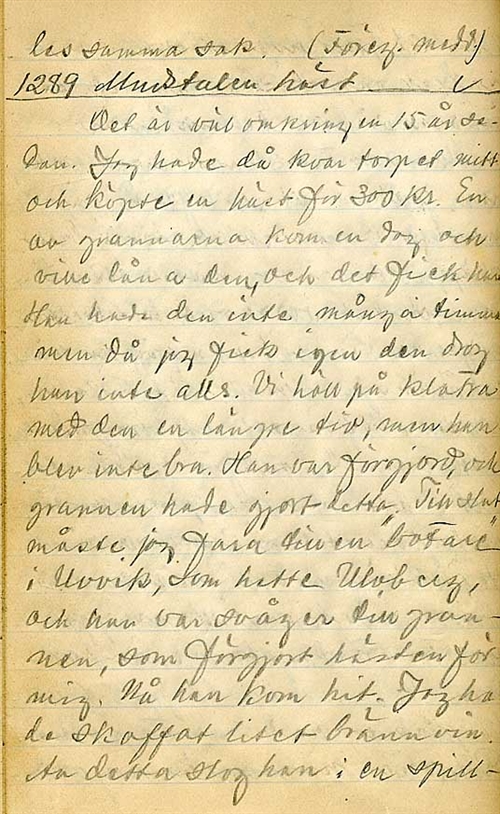 les samma sak. (Förez. medd.)
1289 Modstulen häst.
Det är väl omkring en 15 år se-
dan. Jag hade då kvar torpet mitt
och köpte en häst för 300 kr. En
av grannarna kom en dag och
ville låna den, och det fick han
Han hade den inte många timmar
men då jag fick igen den drog
han inte alls. Vi höll på klatra
med den en längre tid, men han
blev inte bra. Han var förgjord, och
grannen hade gjort detta. Till slut
måste jag fara till en "botare"
i Ulvvik, som hette Ulvberg,
och han var svåger till gran-
nen, som förgjort hästen för
mig. Nå han kom hit. Jag ha
de skaffat litet brännvin.
Av detta slog han i en spill-